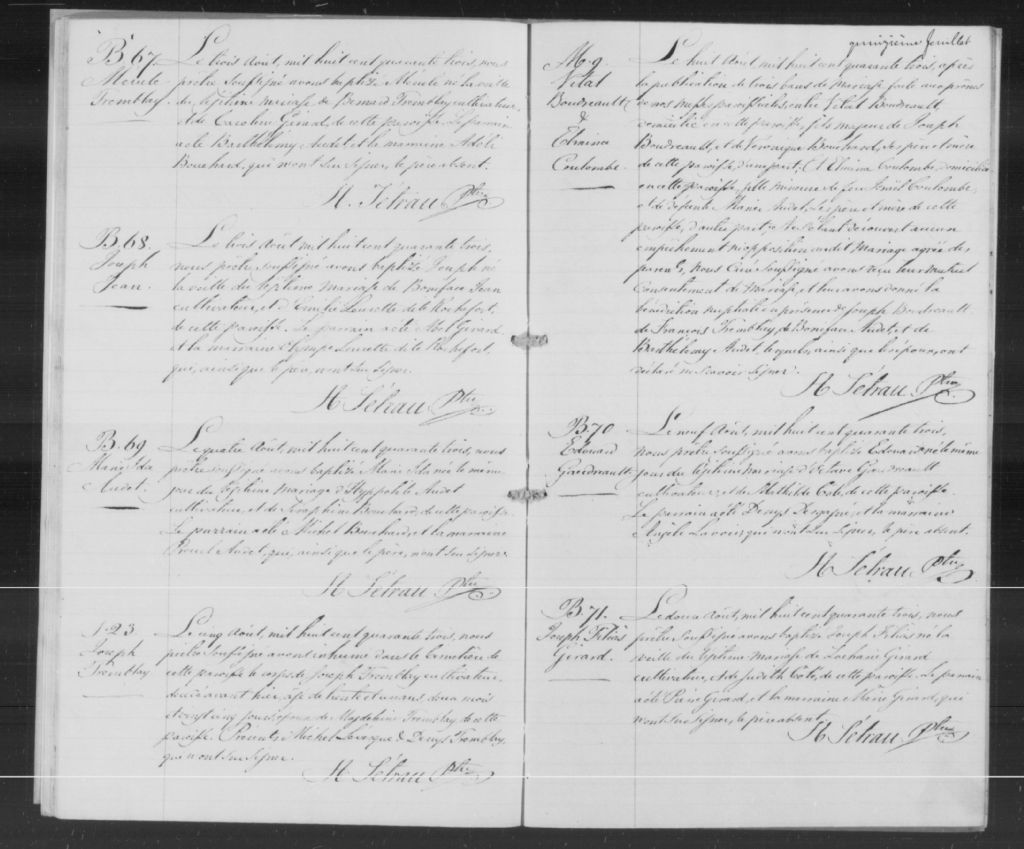 B 67.
Tremblay
Le trois Août, mil huit cent quarante trois, nous
prêtre soussigné avons baptisé né la veille
du légitime mariage de Bernard Tremblay cultivateur,
et de Caroline Girard, de cette paroisse. Le parrain
a été Barthélemy Audet et la marraine Adèle
Bouchard, qui n'ont su signer, le père absent.
H. Tétrau Ptre
B. 68.
Joseph
Jean.
Le trois Août, mil huit cent quarante trois,
nous prêtre soussigné avons baptisé Joseph né
la veille du légitime mariage de Boniface Jean
cultivateur, et d'Emélie dite Rochefort,
de cette paroisse. Le parrain a été Abel Girard
et la marraine Olympe dite Rochefort
qui, ainsi que le père, n'ont su signer.
H Tétrau Ptre
B. 69
Audet.
Le quatre Août, mil huit cent quarante trois, nous
prêtre soussigné avons baptisé Marie née le même
jour du légitime mariage d'Hyppolite Audet
cultivateur, et de Séraphine Bouchard, de cette paroisse.
Le parrain a été Michel Bouchard, et la marraine
Audet, qui, ainsi que le père, n'ont su signer
H Tétrau Ptre
23
Joseph
Tremblay
Le cinq Août, mil huit cent quarante trois, nous
prêtre soussigné avons inhumé dans le cimetière de
cette paroisse le corps de Joseph Tremblay cultivateur,
décédé avant hier, agé de trente et un ans, deux mois
et vingt cinq jours, époux de Magdeleine Tremblay de cette
paroisse. Présents, Michel Lévesque & Denys Tremblay,
qui n'ont su signer.
H Tétrau Ptre
quinzième feuillet
M. 9.
Vital
Boudreault
&
Elmina
Coulombe.
Le huit Août, mil huit cent quarante trois, après
la publication de trois bans de Mariage faite aux prônes
de nos messes paroissiales, entre Vital Boudreault
domicilié en cette paroisse, fils majeur de Joseph
Boudreault, et de Véronique Bouchard, ses père et mère
de cette paroisse, d'une part; Et Elmina Coulombe, domiciliée
en cette paroisse, fille mineure de feu Coulombe,
et de défunte Marie Audet, ses père et mère de cette
paroisse, d'autre part; ne s'étant découvert aucun
empêchement ni opposition au dit Mariage agréé des
parents, Nous Curé soussigné avons reçu leur mutuel
Consentement de Mariage, et leur avons donné la
bénédiction nuptiale en présence de Joseph Boudreault
de François Tremblay, de Boniface Audet, et de
Barthélemy Audet, lesquels, ainsi que les époux, ont
déclaré ne savoir signer.
H Tétrau Ptre.
B 70
Edouard
Gaudreault
Le neuf Août, mil huit cent quarante trois,
nous prêtre soussigné avons baptisé Edouard né le même
jour du légitime mariage d'Octave Gaudreault
cultivateur, et de Mathilde Coté, de cette paroisse.
Le parrain a été Denys Desgagné, et la marraine
Angèle Lavoie, qui n'ont su signer, le père absent.
H Tétrau Ptre
B 71.
Joseph
Girard.
Le douze Août, mil huit cent quarante trois, nous
prêtre soussigné avons baptisé Joseph né la
veille du légitime mariage de Zacharie Girard
cultivateur, et de Judith Coté, de cette paroisse. Le parrain
a été Girard, et la marraine Marie Girard, qui
n'ont su signer, le père absent
H Tétrau Ptre